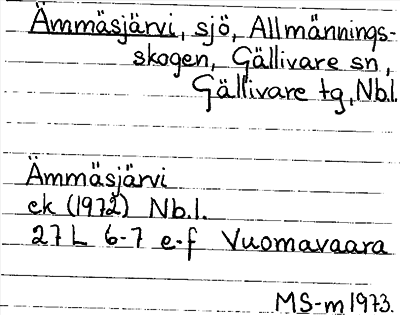 Ämmäsjärvi, sjö, Allmännings-
skogen, Gällivare sn,
Gällivare tg, Nb.l.
Ämmäsjärvi
ek (1972) Nb.l.
27 L 6-7 e-f Vuomavaara
MS-m 1973.